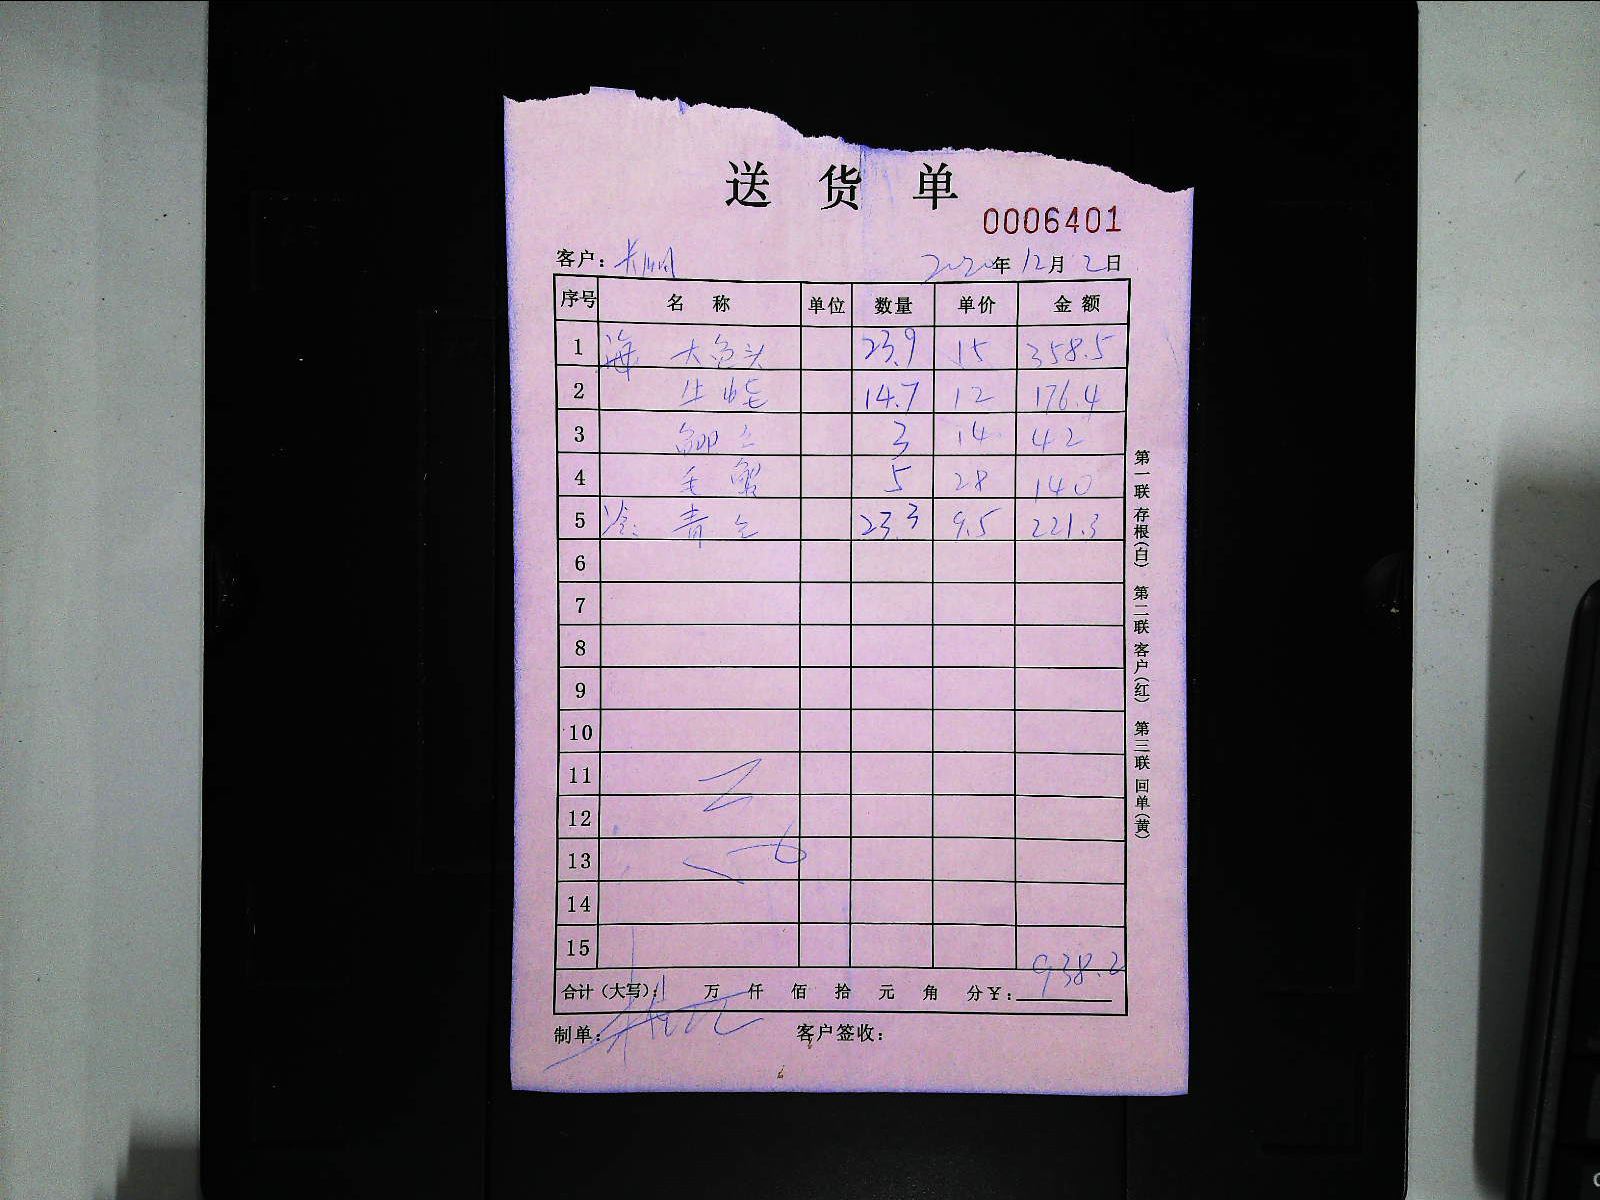 送 货 单
0006401
客户： 2020年12月2日
序号 名 称 单位 数量 单价 金额
1 海 大鱼头 23.9 15 358.5
2 生蚝 14.7 12 176.4
3 鲫鱼 3 14 42
4 毛蟹 5 28 140
5 冷： 青鱼 23.3 9.5 221.3
6
7
8
9
10
11
12
13
14
15
938.2
合计（大写）： 万 仟 佰 拾 元 角 分￥：
制单： 客户签收：
第一联 存根（白） 第二联 客户（红） 第三联 回单（黄）